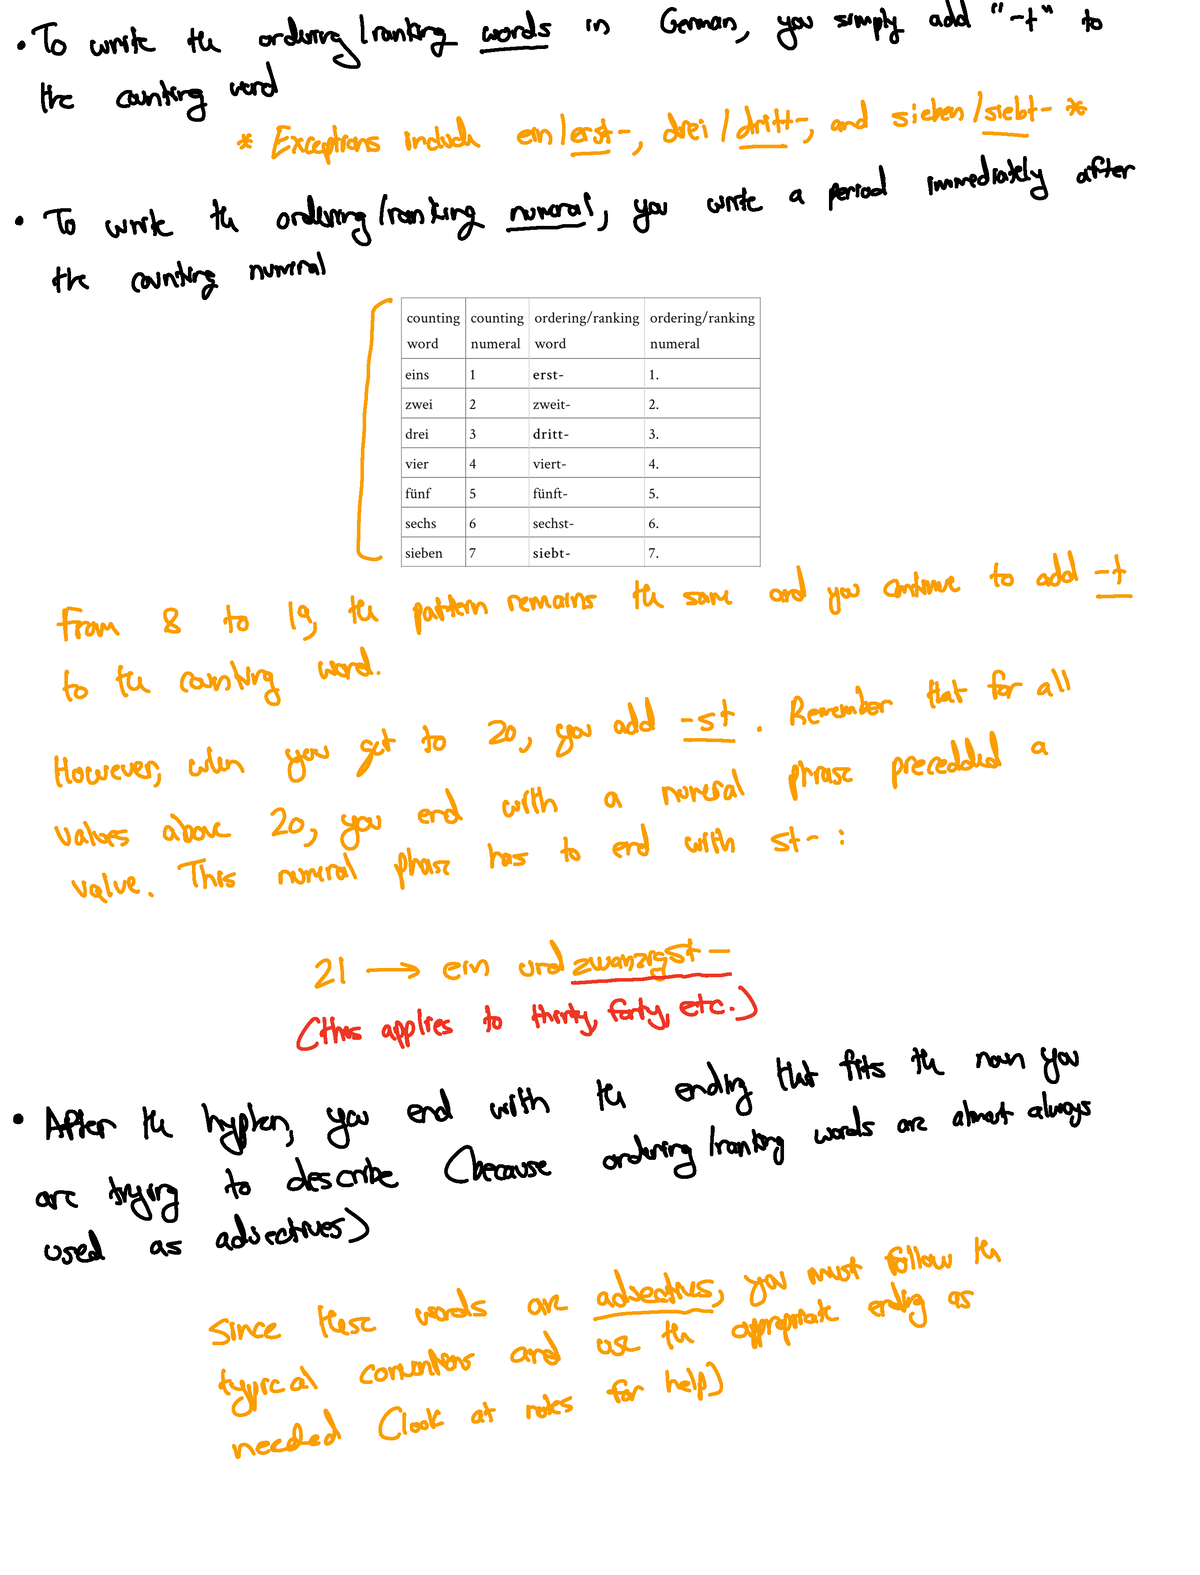 • To write the ordering/ranking words in German, you simply add "-t" to
the counting word
* Exceptions include ein/erst-, drei/dritt-, and sieben/siebt- *
• To write the ordering/ranking numeral, you write a period immediately after
the counting numeral
counting word counting numeral ordering/ranking word ordering/ranking numeral
eins 1 erst- 1.
zwei 2 zweit- 2.
drei 3 dritt- 3.
vier 4 viert- 4.
fünf 5 fünft- 5.
sechs 6 sechst- 6.
sieben 7 siebt- 7.
From 8 to 19, the pattern remains the same and you continue to add -t
to the counting word.
However, when you get to 20, you add -st. Remember that for all
values above 20, you end with a numeral phrase precedded a
value. This numeral phase has to end with st- :
21 → ein und zwanzigst-
(this applies to thirty, forty, etc.)
• After the hyphen, you end with the ending that fits the noun you
are trying to describe (because ordering/ranking words are almost always
used as adjectives)
Since these words are adjectives, you must follow the
typical conventions and use the appropriate ending as
needed (look at notes for help)